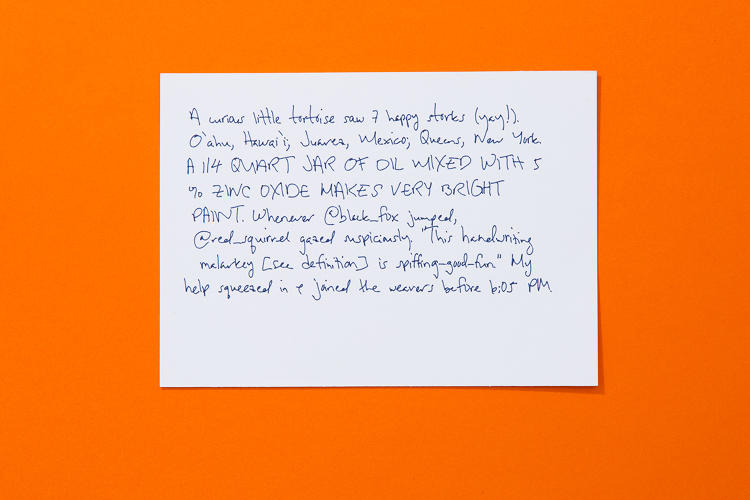 A curious little tortoise saw 7 happy storks (yay!).
O'ahu, Hawai'i; Juarez, Mexico; Queens, New York.
A 1/4 QUART JAR OF OIL MIXED WITH 5
% ZINC OXIDE MAKES VERY BRIGHT
PAINT. Whenever @black_fox jumped,
@red_squirrel gazed suspiciously. "This handwriting
malarkey [see definition] is spiffing-good-fun." My
help squeezed in & joined the weavers before 6:05 PM.